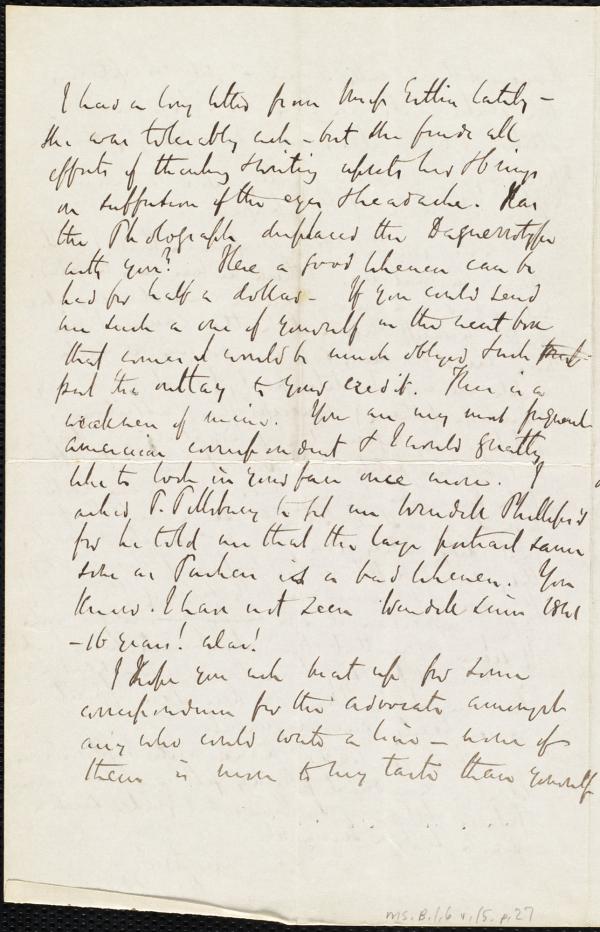 I had a long letter from Miss Estlin lately –
she was tolerably well – but she finds all
efforts of thinking & writing upsets her & brings
on suffusion of the eyes & headache. Has
the Photograph displaced the Daguerrotype
with you? Here a good likeness can be
had for half a dollar – If you could send
me such a one of yourself in the next box
that comes I would be much obliged & such
put the outlay to your credit. This is a
weakness of mine. You are my most frequent
American correspondent & I would greatly
like to look in your face once more. I
asked P. Pillsbury to get me Wendell Phillips's
for he told me that the large portrait same
size as Parker is a bad likeness. You
know I have not seen Wendell since 1841
– 16 years! alas!
I hope you will beat up for some
correspondence for the Advocate amongst
any who could write a line – none of
them is more to my taste than yourself
Ms. B. 1. 6 v. 15. p. 27